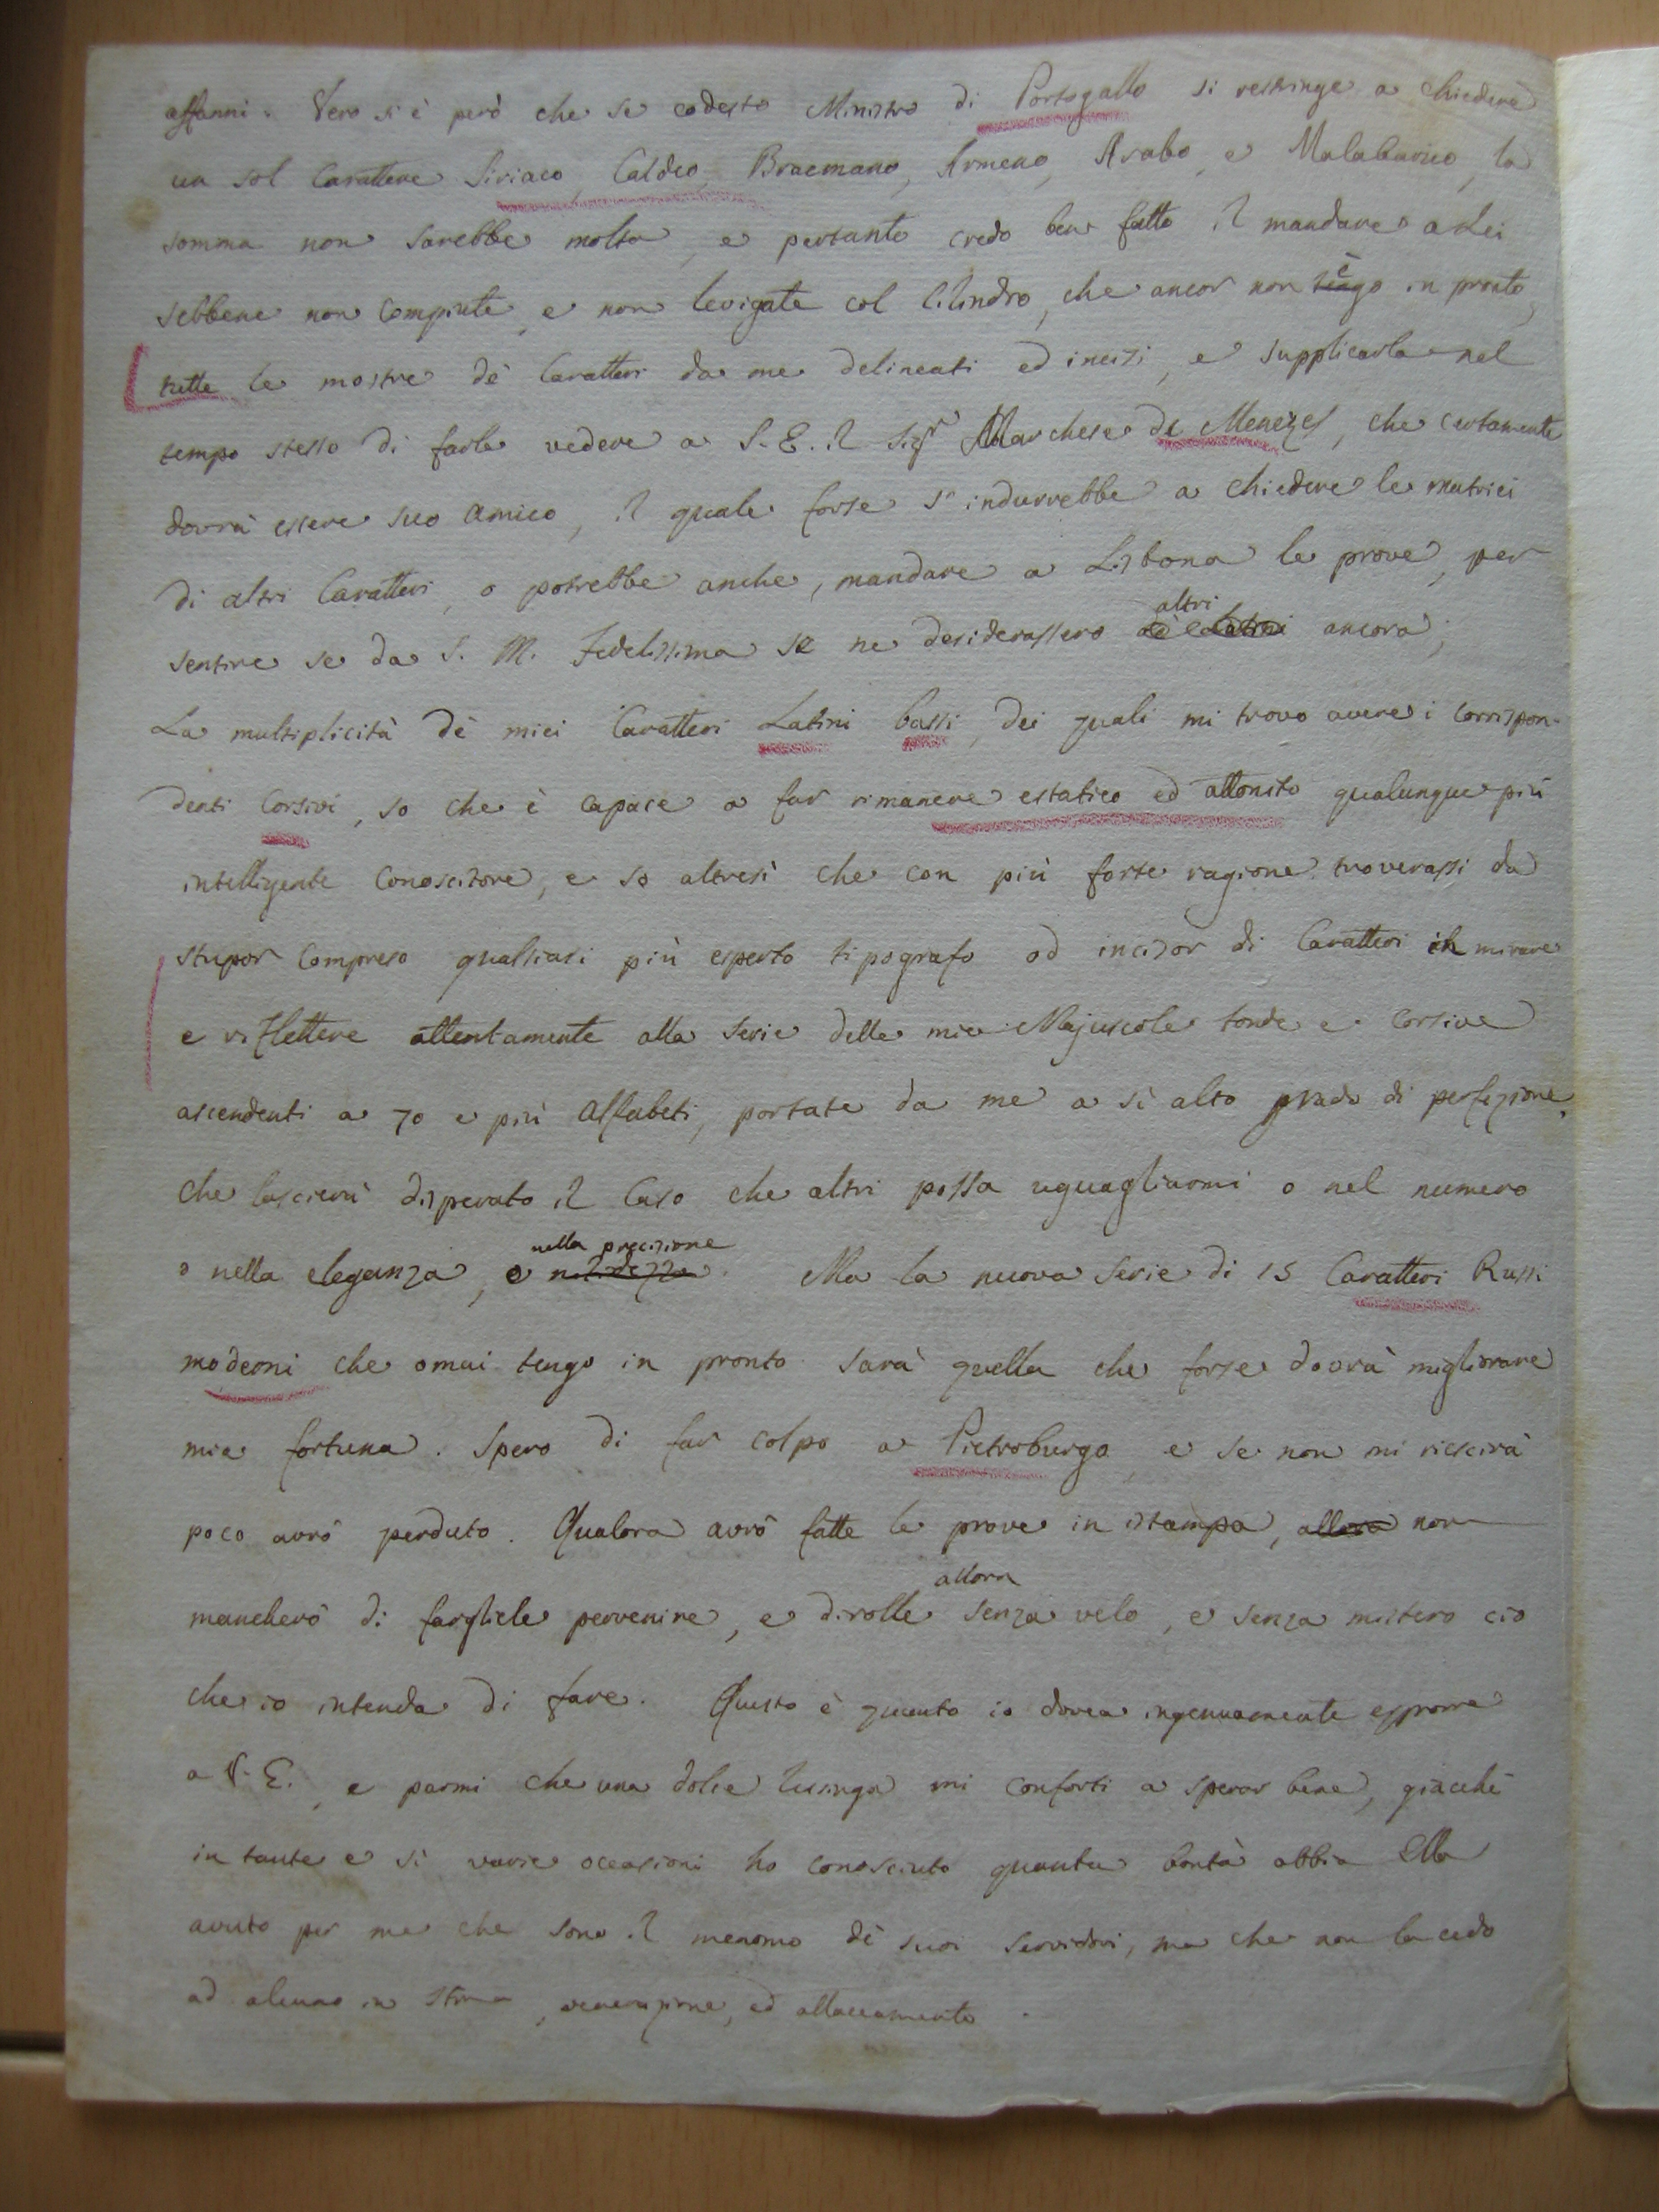 affanni. Vero si è però che se codesto Ministro di Portogallo si restringe a chiedere
un sol Carattere Siriaco, Caldeo, Bracmano, Armeno, Arabo, e Malabarico, la
somma non sarebbe molta, e pertanto credo ben fatto il mandare a Lei
sebbene non compiute, e non levigate col Cilindro, che ancor non tengo in pronto,
tutte le mostre de' Caratteri da me delineati ed incisi, e supplicarla nel
tempo stesso di farle vedere a S. E. il Sigr Marchese de Menezes, che certamente
dovrà essere suo amico, il quale forse s'indurrebbe a chiedere le matrici
di altri Caratteri, o potrebbe anche, mandare a Lisbona le prove, per
sentire se da S. M. Fedelissima se ne desiderassero altri ancora;
La multiplicità de' miei Caratteri Latini bassi, dei quali mi trovo avere i corrispon-
denti Corsivi, so che è capace a far rimanere estatico ed attonito qualunque più
intelligente Conoscitore, e so altresì che con più forte ragione troverassi da
stupor compreso qualsiasi più esperto tipografo od incisor di Caratteri in mirare
e riflettere attentamente alla serie delle mie Majuscole tonde e corsive
ascendenti a 70 e più Alfabeti, portate da me a sì alto grado di perfezione,
che lascierà disperato il caso che altri possa uguagliarmi o nel numero
o nella eleganza, o nella precisione nitidezza. Ma la nuova serie di 15 Caratteri Russi
moderni che omai tengo in pronto sarà quella che forse dovrà migliorare
mia fortuna. Spero di far colpo a Pietroburgo, e se non mi riescirà
poco avrò perduto. Qualora avrò fatte le prove in istampa, allora non
mancherò di fargliele pervenire, e dirolle allora senza velo, e senza mistero ciò
che io intenda di fare. Questo è quanto io dovea ingenuamente esporre
a V. E., e parmi che una dolce lusinga mi conforti a sperar bene, giacchè
in tante e sì varie occasioni ho conosciuto quanta bontà abbia Ella
avuto per me che sono il menomo de' suoi servidori, ma che non la cedo
ad alcuno in stima, venerazione, ed attaccamento.